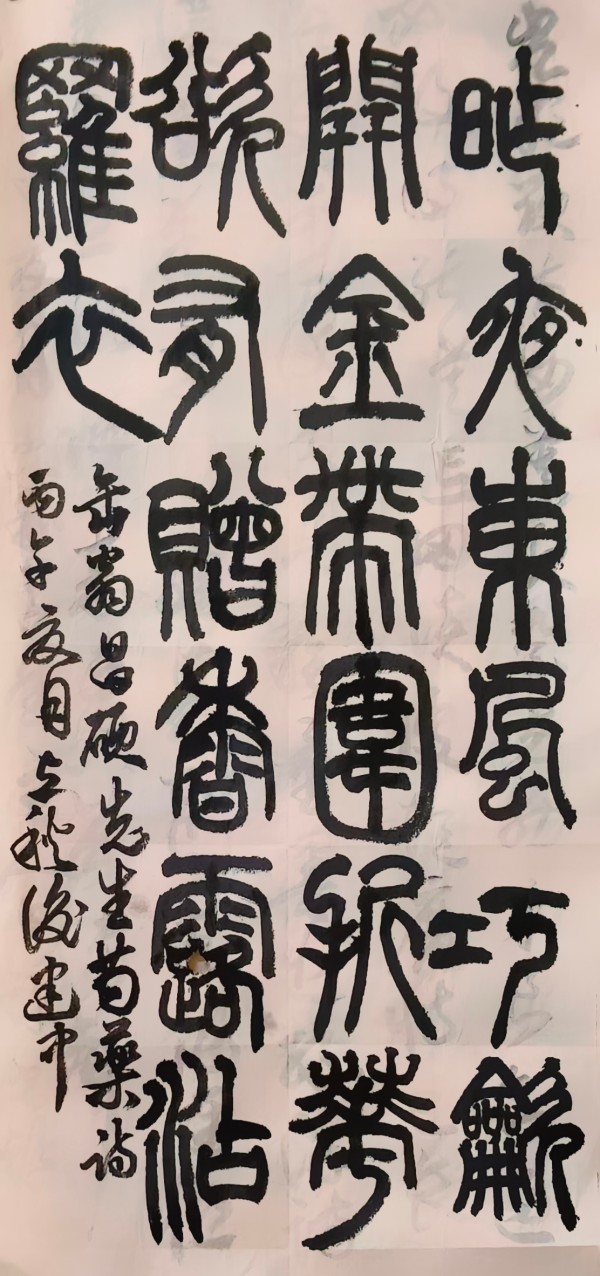 昨夜東風巧龡
開金帶圍折華
欲有贈香露沾
羅衣
缶翁昌碩先生芍藥詩
丙午夏月立秋後建中